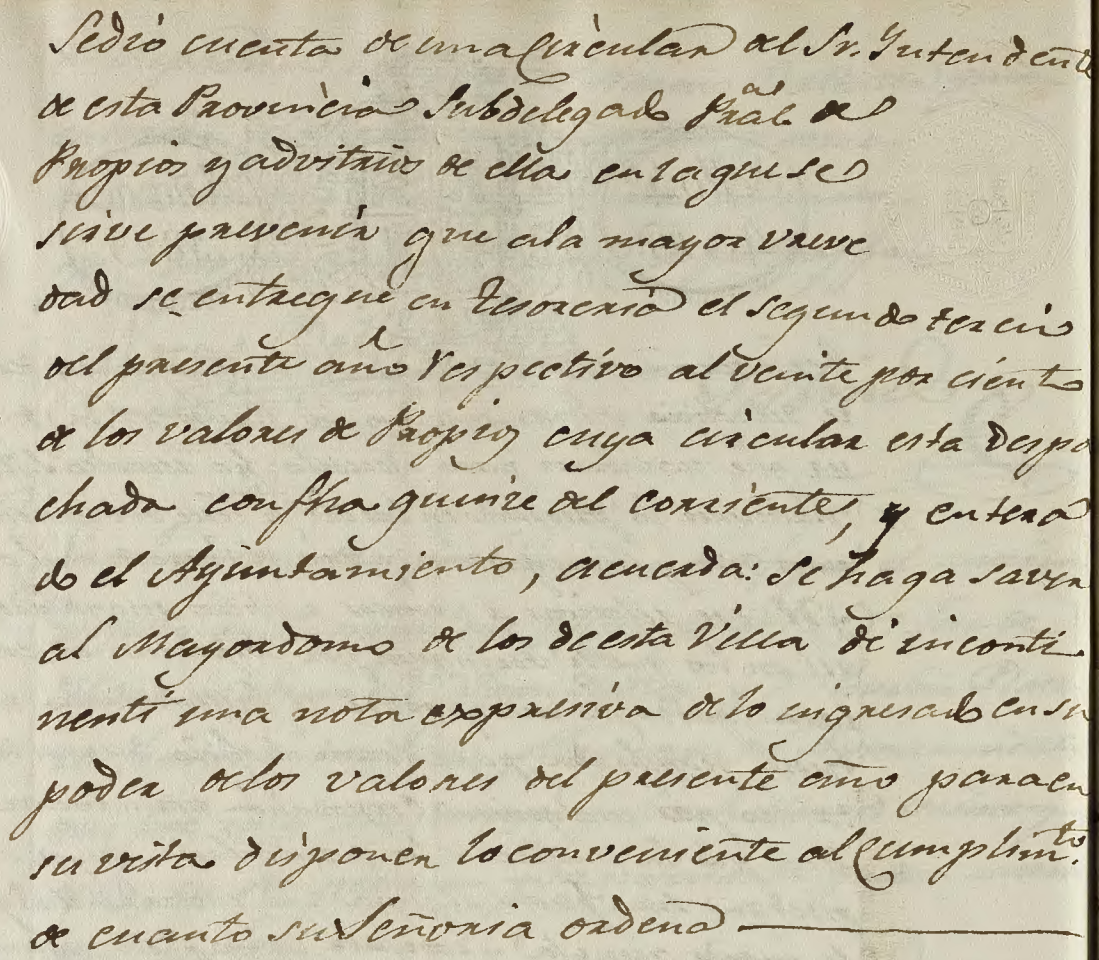 Sedió cuenta de una Circular del Sr. Yntendente
de esta Provincia Subdelegado Pral de
Propios y advitrios de ella en la que se
sirve prevenir que ala mayor vreve
dad se entregue en tesoreria el segundo tercio
del presente año respectivo al veinte por ciento
de los valores de Propios cuya circular esta despa
chada con fha quince del corriente, y entera
do el Ayuntamiento, acuerda: se haga saver
al Mayordomo de los de esta Villa dé inconti
nenti una nota expresiva de lo ingresado en su
poder de los valores del presente año para en
su vista disponer lo conveniente al Cumplimto.
de cuanto su Señoria ordena